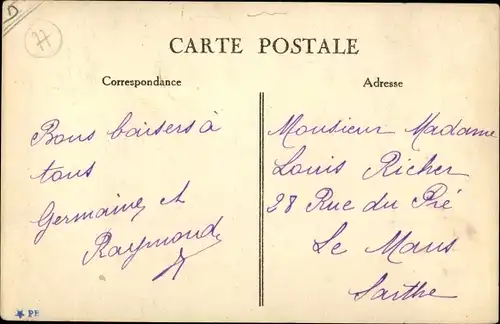 D
H
CARTE POSTALE
Correspondance
Bons baisers à
tous
Germaine et
Raymond
Adresse
Monsieur Madame
Louis Richer
28 Rue du Pré
Le Mans
Sarthe
PF